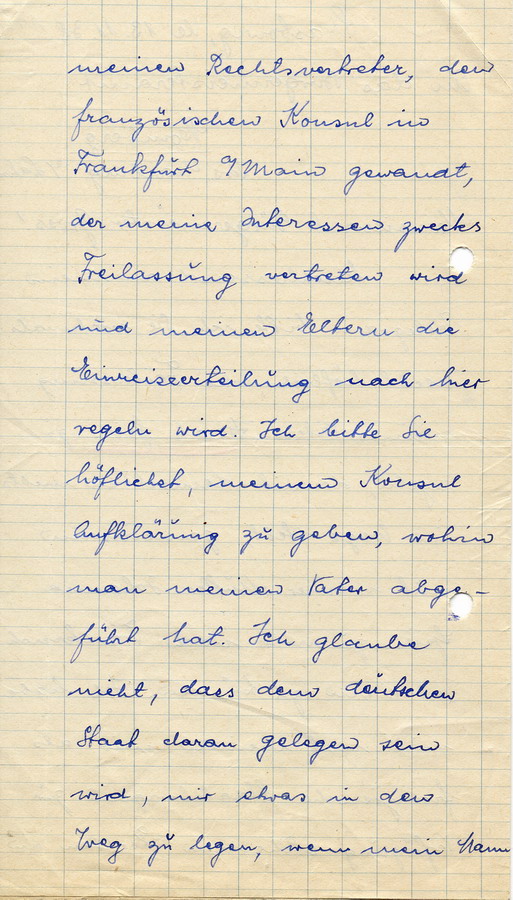 meinen Rechtsvertreter, den
französischen Konsul in
Frankfurt a/Main gewandt,
der meine Interessen zwecks
Freilassung vertreten wird
und meinen Eltern die
Einreiseerteilung nach hier
regeln wird. Ich bitte Sie
höflichst, meinem Konsul
Aufklärung zu geben, wohin
man meinen Vater abge-
führt hat. Ich glaube
nicht, dass dem deutschen
Staat daran gelegen sein
wird, mir etwas in den
Weg zu legen, wenn mein Mann